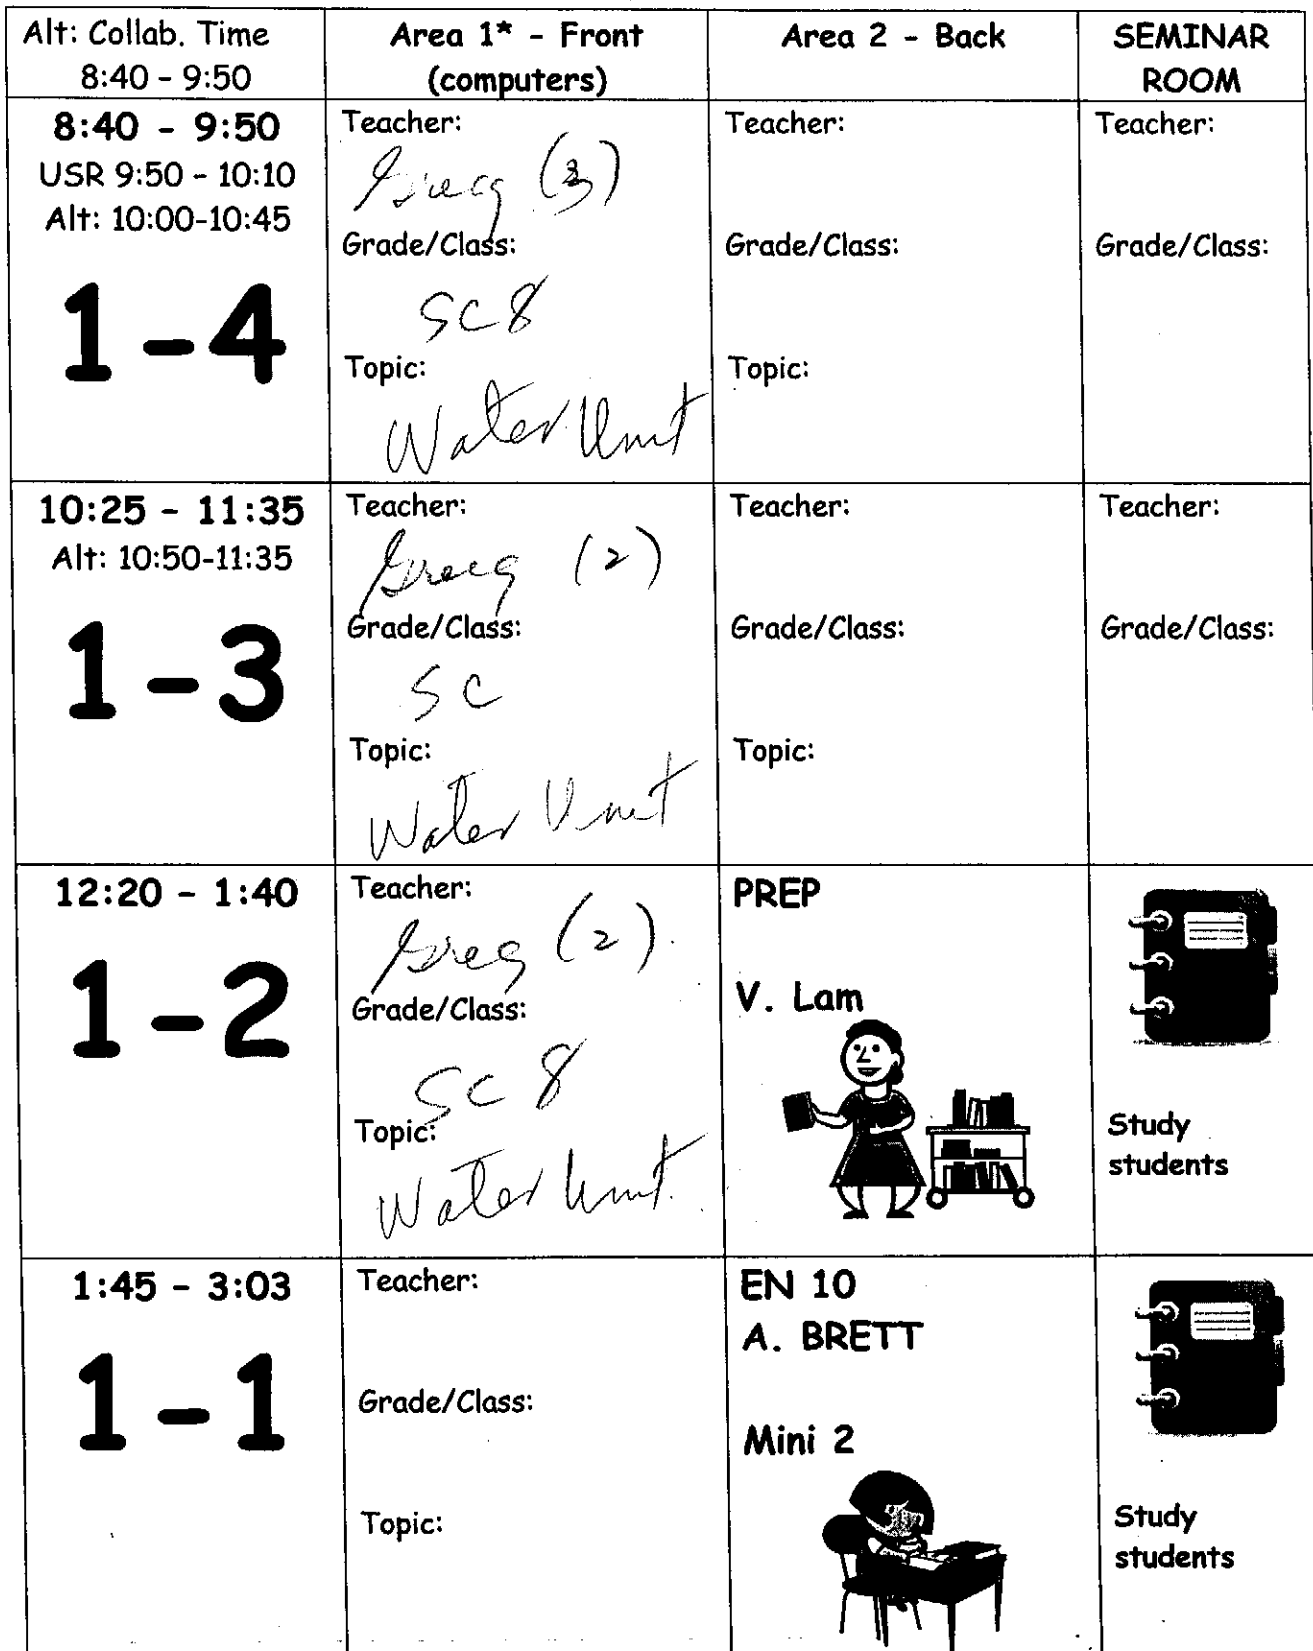 Alt: Collab. Time
8:40 - 9:50
Area 1* - Front
(computers)
Area 2 - Back
SEMINAR
ROOM
8:40 - 9:50
USR 9:50 - 10:10
Alt: 10:00-10:45
1-4
Teacher:
Greeg (3)
Grade/Class:
SC 8
Topic:
Water Unit
Teacher:
Grade/Class:
Topic:
Teacher:
Grade/Class:
10:25 - 11:35
Alt: 10:50-11:35
1-3
Teacher:
Greeg (2)
Grade/Class:
SC
Topic:
Water Unit
Teacher:
Grade/Class:
Topic:
Teacher:
Grade/Class:
12:20 - 1:40
1-2
Teacher:
Greg (2)
Grade/Class:
SC 8
Topic:
Water Unit
PREP
V. Lam
Study
students
1:45 - 3:03
1-1
Teacher:
Grade/Class:
Topic:
EN 10
A. BRETT
Mini 2
Study
students